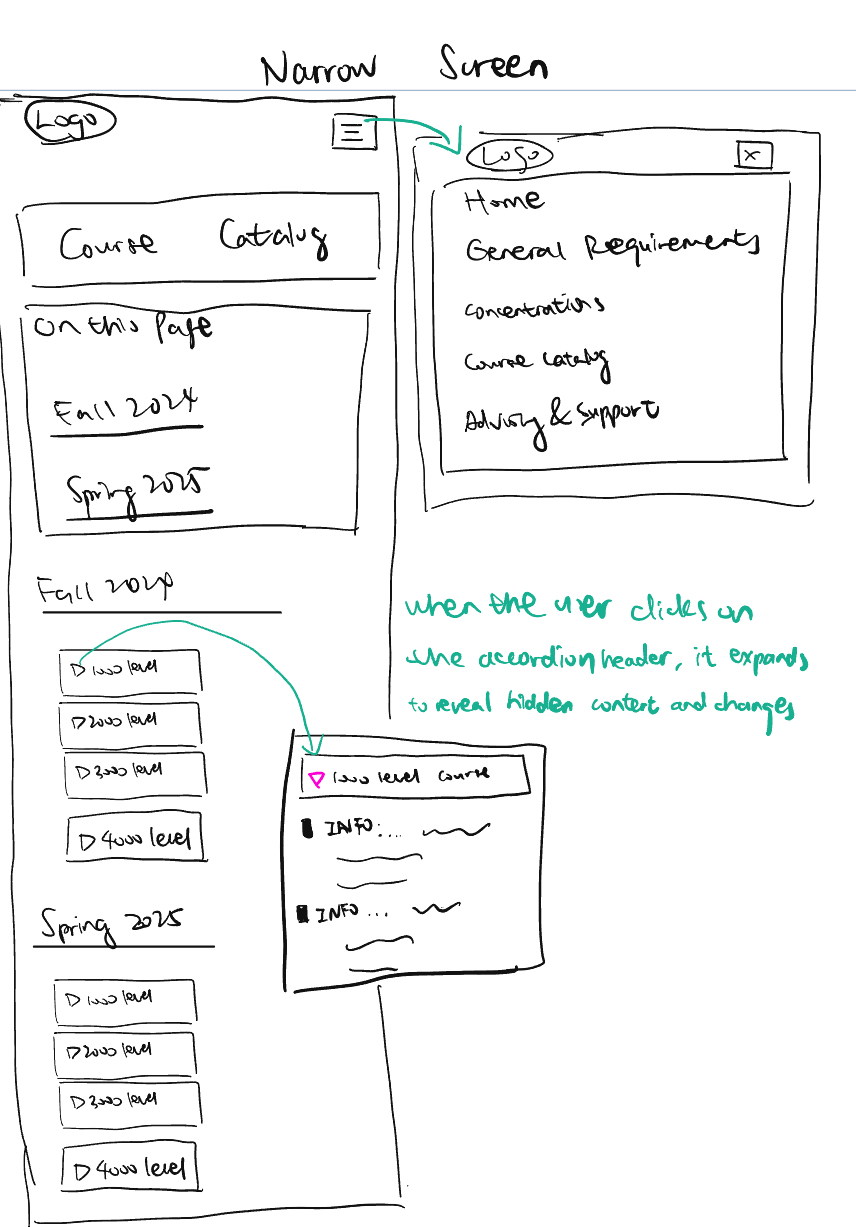 Narrow Screen
Logo
Course Catalog
On this Page
Fall 2024
Spring 2025
Fall 2024
▷ 1000 level
▷ 2000 level
▷ 3000 level
▷ 4000 level
Spring 2025
▷ 1000 level
▷ 2000 level
▷ 3000 level
▷ 4000 level
Logo
X
Home
General Requirements
Concentrations
Course Catalog
Advising & Support
when the user clicks on
the accordion header, it expands
to reveal hidden content and changes
▽ 1000 level course
INFO:...
INFO ...